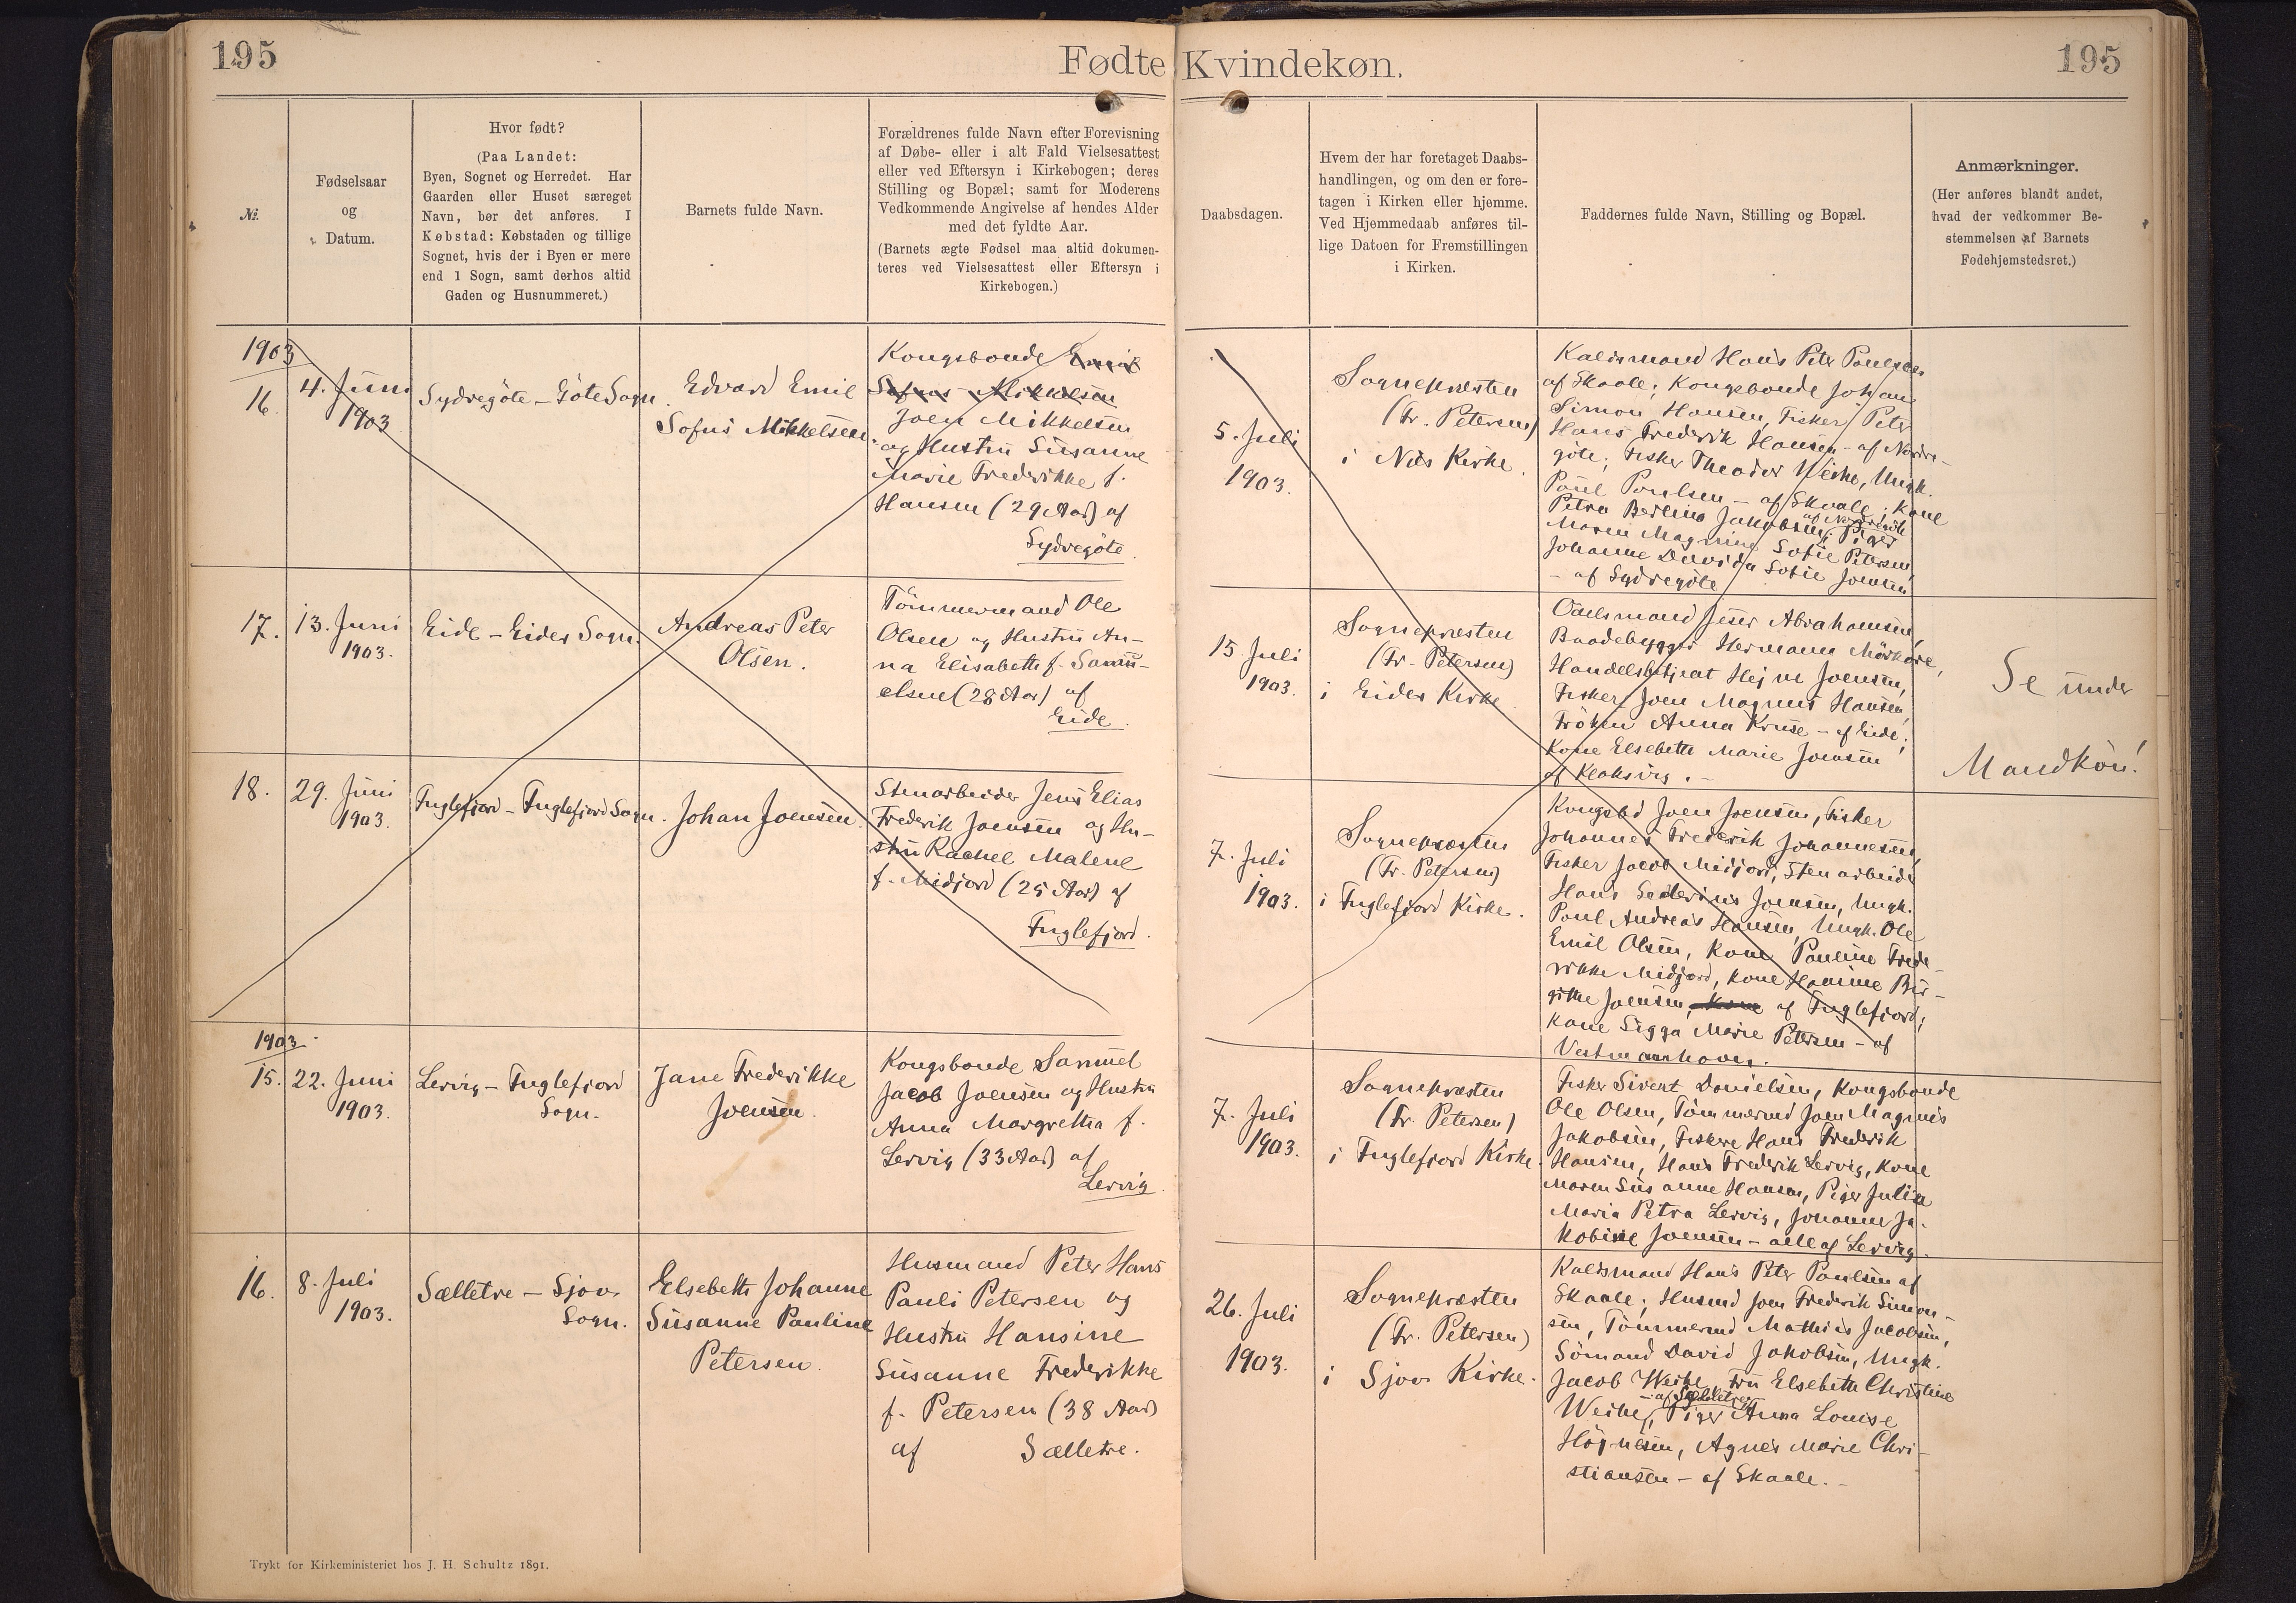 195
Fødte Kvindekøn.
195
№.
Fødselsaar
og
Datum.
Hvor født?
(Paa Landet:
Byen, Sognet og Herredet. Har
Gaarden eller Huset særeget
Navn, bør det anføres. I
Købstad: Købstaden og tillige
Sognet, hvis der i Byen er mere
end 1 Sogn, samt derhos altid
Gaden og Husnummeret.)
Barnets fulde Navn.
Forældrenes fulde Navn efter Forevisning
af Døbe- eller i alt Fald Vielsesattest
eller ved Eftersyn i Kirkebogen; deres
Stilling og Bopæl; samt for Moderens
Vedkommende Angivelse af hendes Alder
med det fyldte Aar.
(Barnets ægte Fødsel maa altid dokumen-
teres ved Vielsesattest eller Eftersyn i
Kirkebogen.)
Daabsdagen.
Hvem der har foretaget Daabs-
handlingen, og om den er fore-
tagen i Kirken eller hjemme.
Ved Hjemmedaab anføres til-
lige Datoen for Fremstillingen
i Kirken.
Faddernes fulde Navn, Stilling og Bopæl.
Anmærkninger.
(Her anføres blandt andet,
hvad der vedkommer Be-
stemmelsen af Barnets
Fødehjemstedsret.)
1903
16.
4. Juni
1903
Sydregöte - Göte Sogn.
Edvard Emil
Sofus Mikkelsen.
Kongsbonde Emil
Sofus Mikkelsen
Joen Mikkelsen
og Hustru Susanne
Marie Frederikke f.
Hansen (29 Aar) af
Sydregöte.
5. Juli
1903.
Sognepræsten
(Fr. Petersen)
i Næs Kirke.
Kaldsmand Hans Peter Poulsen
af Skaale; Kongsbonde Johan
Simon Hansen, Fisker Peter
Hans Frederik Hansen - af Nordre-
göte; Fisker Theodor Weihe, Ungk.
Poul Poulsen - af Skaale; Kone
Petra Berlina Jakobsen, Piger
af Nordregöte
Maren Magrine Sofie Petersen,
Johanne Davida Sofie Joensen
- af Sydregöte
17.
13. Juni
1903.
Eide - Eides Sogn.
Andreas Peter
Olsen.
Tömmermand Ole
Olsen og Hustru An-
na Elisabeth f. Samu-
elsen (28 Aar) af
Eide.
15. Juli
1903.
Sognepræsten
(Fr. Petersen)
i Eides Kirke.
Odelsmand Jeser Abrahamsen,
Baadebygger Hermann Mörköre,
Handelsbetjent Hejne Joensen,
Fisker Joen Magnus Hansen,
Fröken Anna Kruse - af Eide;
Kone Elsebeth Marie Joensen
af Klaksvig. -
Se under
Mandkön!
18.
29. Juni
1903.
Fuglefjord - Fuglefjord Sogn.
Johan Joensen.
Stenarbeider Jens Elias
Frederik Joensen og Hu-
stru Rachel Malene
f. Midjord (25 Aar) af
Fuglefjord.
7. Juli
1903.
Sognepræsten
(Fr. Petersen)
i Fuglefjord Kirke.
Kongsbd Joen Joensen, Fisker
Johannes Frederik Johannesen,
Fisker Jacob Midjord, Stenarbeider
Hans Severinus Joensen, Ungk.
Poul Andreas Hansen, Ungk. Ole
Emil Olsen, Kone Pauline Frede-
rikke Midjord, Kone Hansine Bir-
gitte Joensen, Kone af Fuglefjord;
Kone Sigga Marie Petersen - af
Vestmanhavn.
1903.
15.
22. Juni
1903.
Lervig - Fuglefjord
Sogn.
Jane Frederikke
Joensen.
Kongsbonde Samuel
Jacob Joensen og Hustru
Anna Margretha f.
Lervig (33 Aar) af
Lervig.
7. Juli
1903.
Sognepræsten
(Fr. Petersen)
i Fuglefjord Kirke.
Fisker Sivert Danielsen, Kongsbonde
Ole Olsen, Tömmermd Joen Magnus
Jakobsen, Fiskere Hans Frederik
Hansen, Hans Frederik Lervig, Kone
Maren Susanne Hansen, Piger Julia
Maria Petra Lervig, Johanne Ja-
kobine Joensen - alle af Lervig.
16.
8. Juli
1903.
Sælletre - Sjov
Sogn.
Elsebeth Johanne
Susanne Pauline
Petersen.
Husmand Peter Hans
Pauli Petersen og
Hustru Hansine
Susanne Frederikke
f. Petersen (38 Aar)
af Sælletre.
26. Juli
1903.
Sognepræsten
(Fr. Petersen)
i Sjov Kirke.
Kaldsmand Hans Peter Poulsen af
Skaale; Husmd Joen Frederik Simon-
sen, Tömmermd Mathias Jacobsen,
Sömand David Jakobsen, Ungk.
Jacob Weihe, Fru Elsebeth Christine
- af Sælletre;
Weihe, Piger Anna Louise
Höjnesen, Agnes Marie Chri-
stiansen - af Skaale. -
Trykt for Kirkeministeriet hos J. H. Schultz 1891.